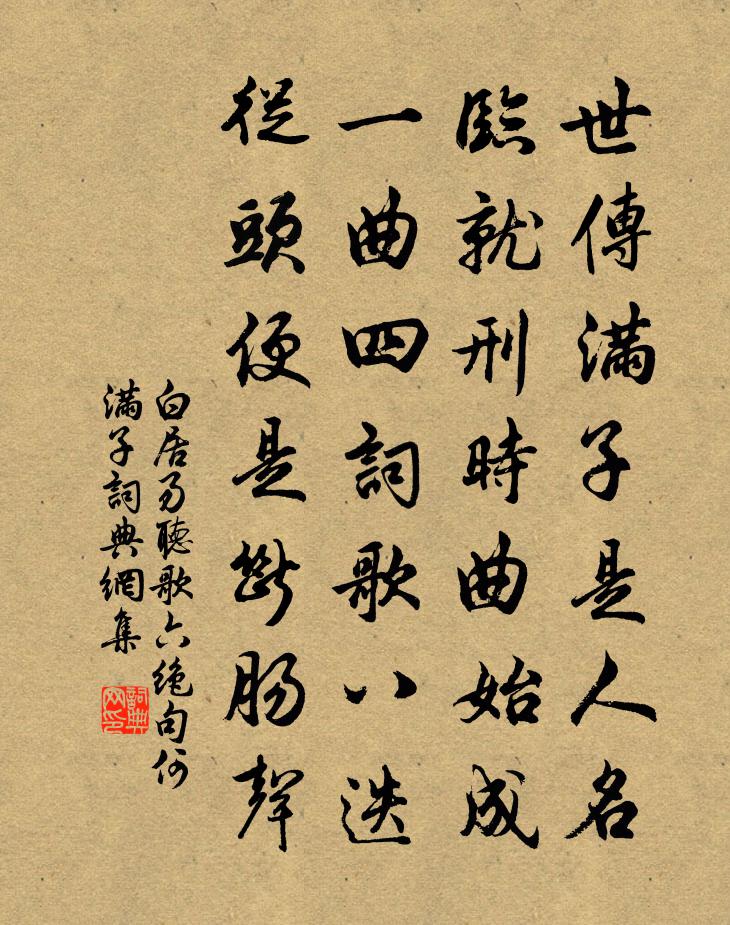 世傳滿子是人名
臨就刑時曲始成
一曲四詞歌八迭
從頭便是斷腸聲
白居易聽歌六絕句何
滿子詞典網集
詞典网印